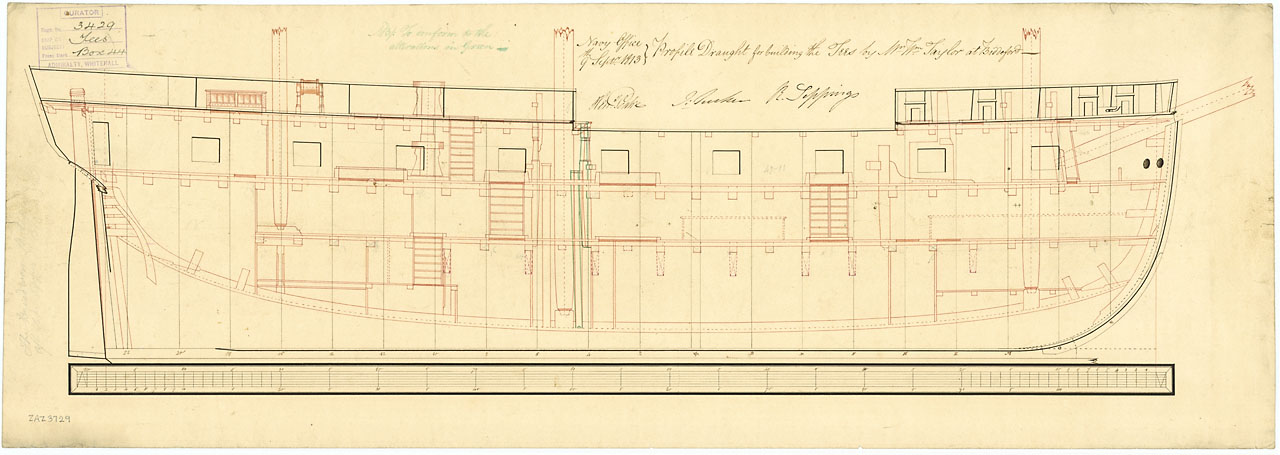 CURATOR
3429
Tees
Box 44
ADMIRALTY, WHITEHALL
to conform to the
alterations in Green
Navy Office
9th Septr. 1813
Profile Draught for building the Tees by Mr. Wm. Taylor at Bideford
R. Seppings
ZAZ3729